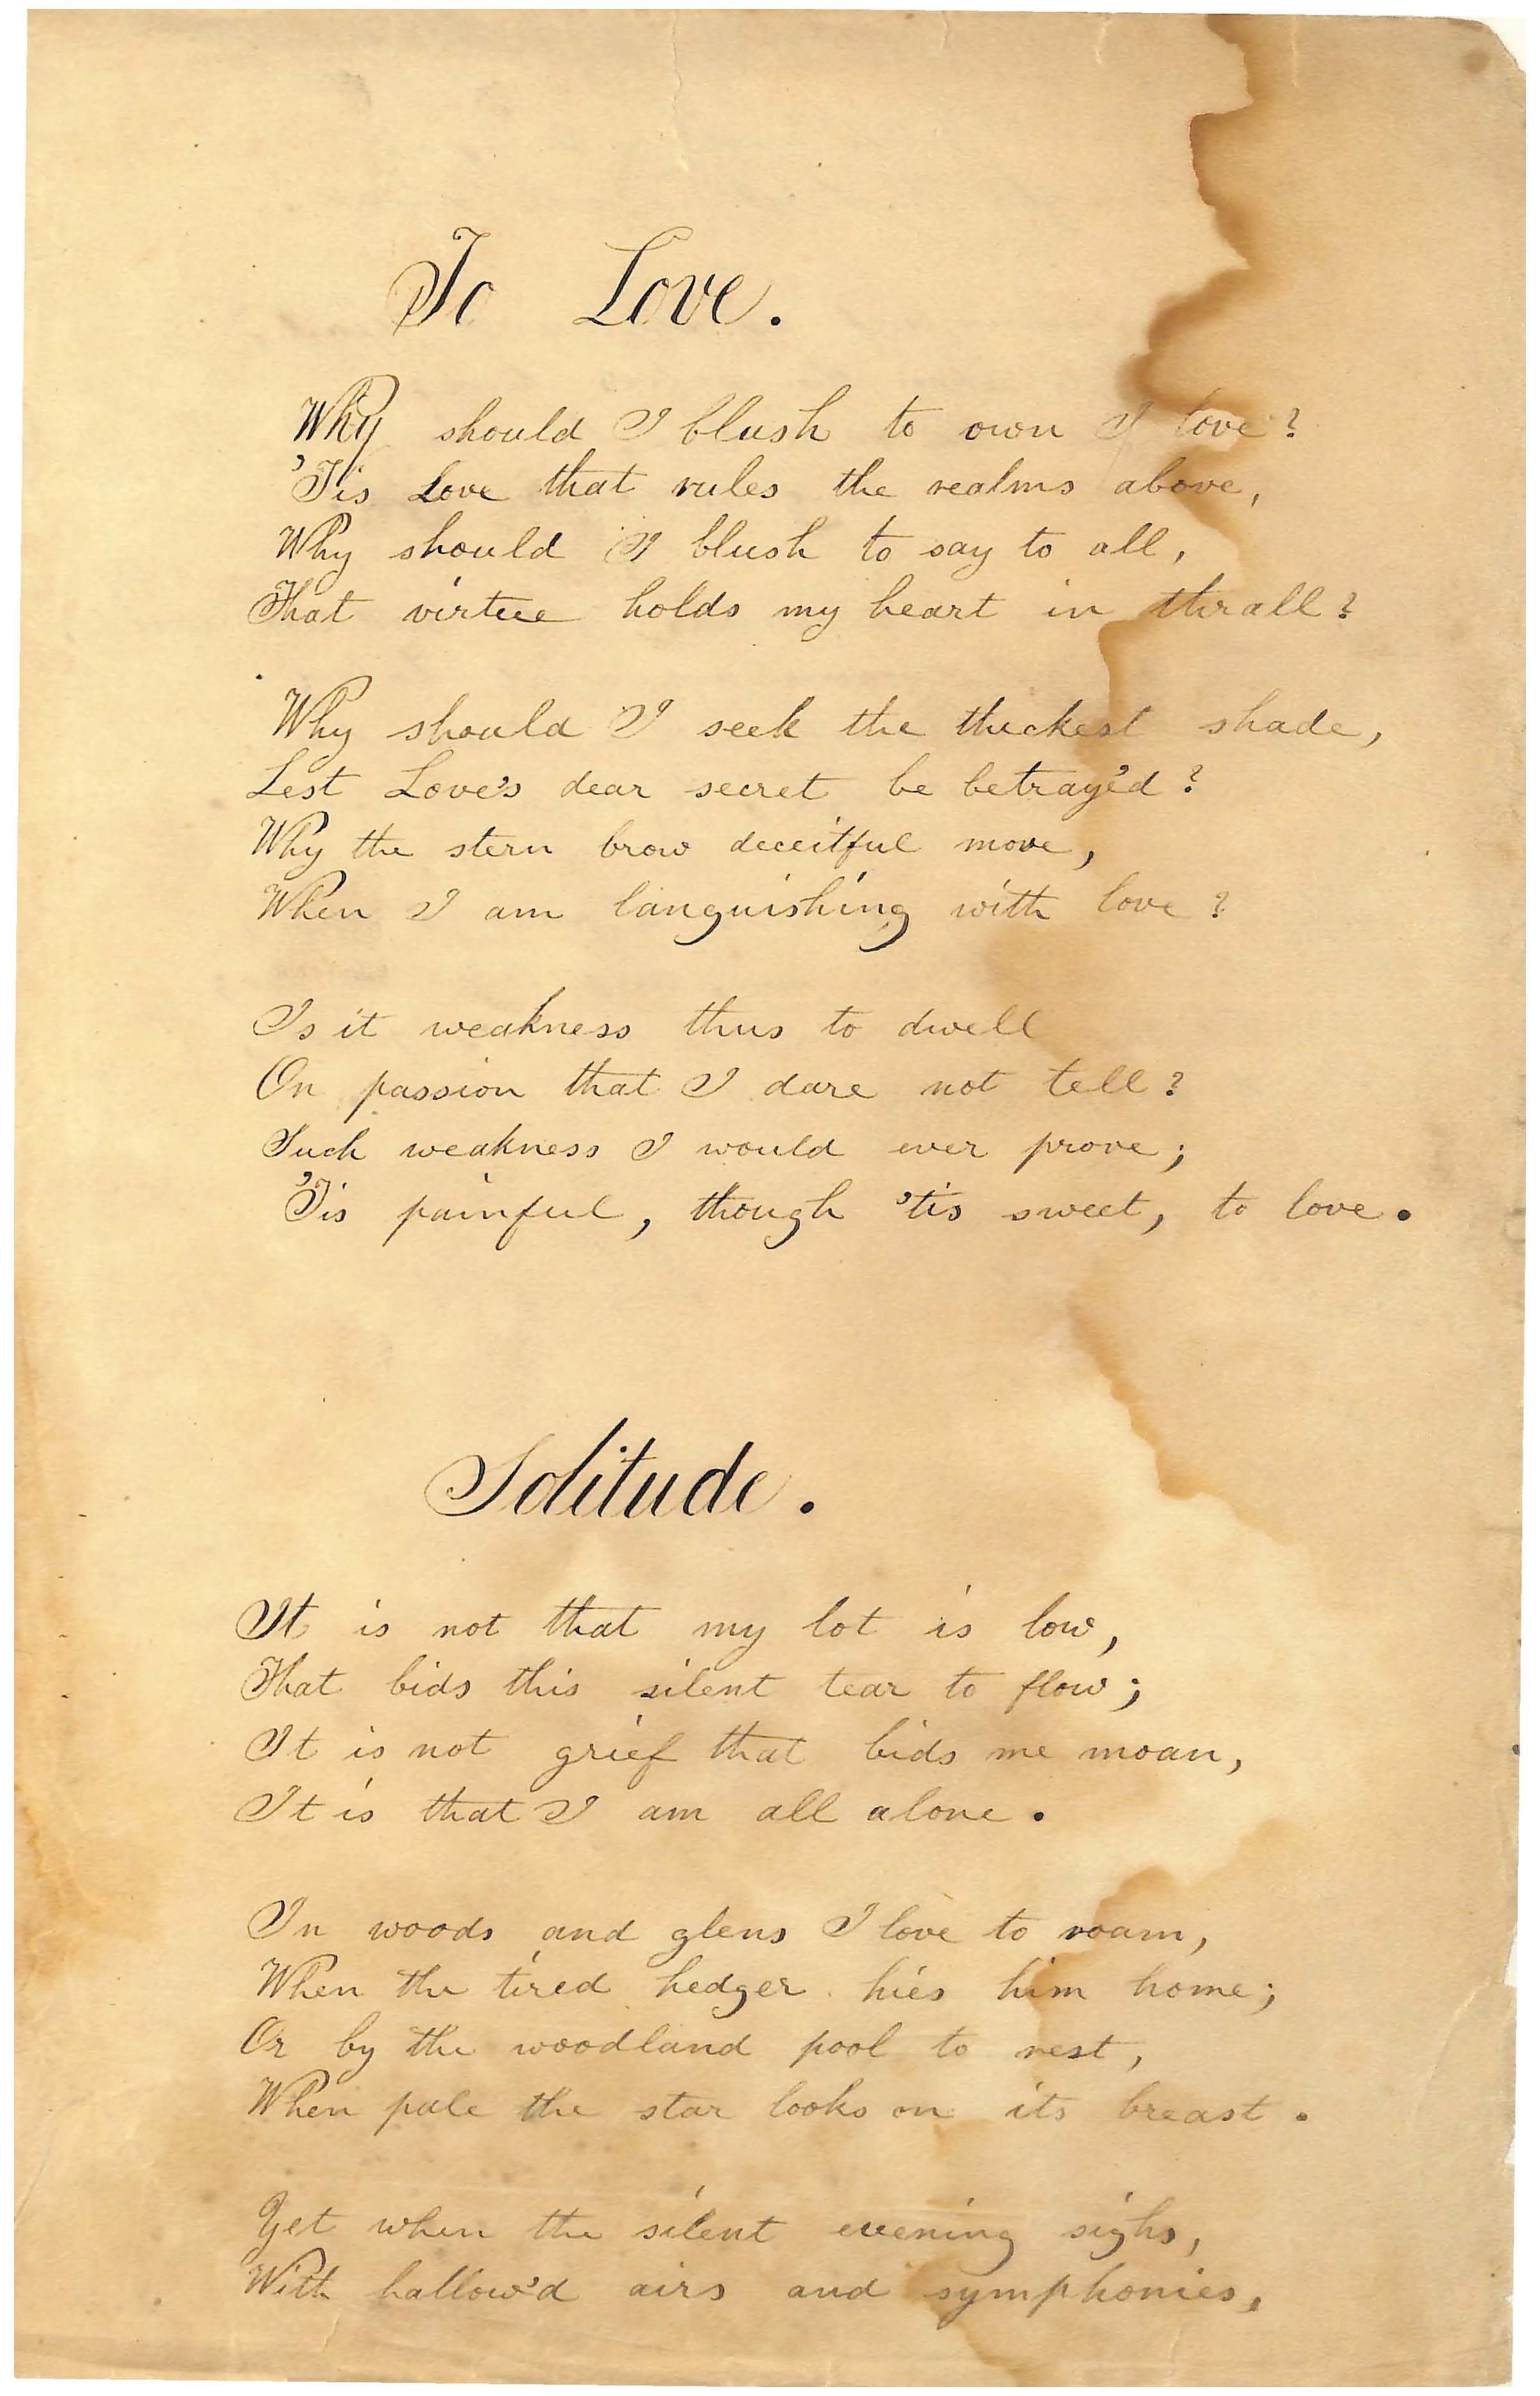 To Love.
Why should I blush to own I love?
'Tis Love that rules the realms above,
Why should I blush to say to all,
That virtue holds my heart in thrall?
Why should I seek the thickest shade,
Lest Love's dear secret be betray'd?
Why the stern brow deceitful move,
When I am languishing with love?
Is it weakness thus to dwell
On passion that I dare not tell?
Such weakness I would ever prove;
'Tis painful, though 'tis sweet, to love.
Solitude.
It is not that my lot is low,
That bids this silent tear to flow;
It is not grief that bids me moan,
It is that I am all alone.
In woods and glens I love to roam,
When the tired hedger hies him home;
Or by the woodland pool to rest,
When pale the star looks on its breast.
Yet when the silent evening sighs,
With hallow'd airs and symphonies,